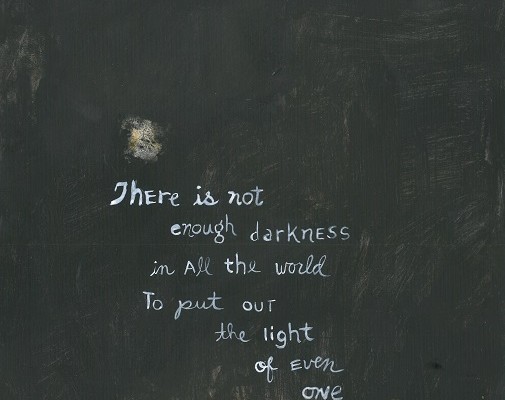 ThErE is not
enough darkNESS
in All the world
To put OUT
the light
of EVEN
ONE